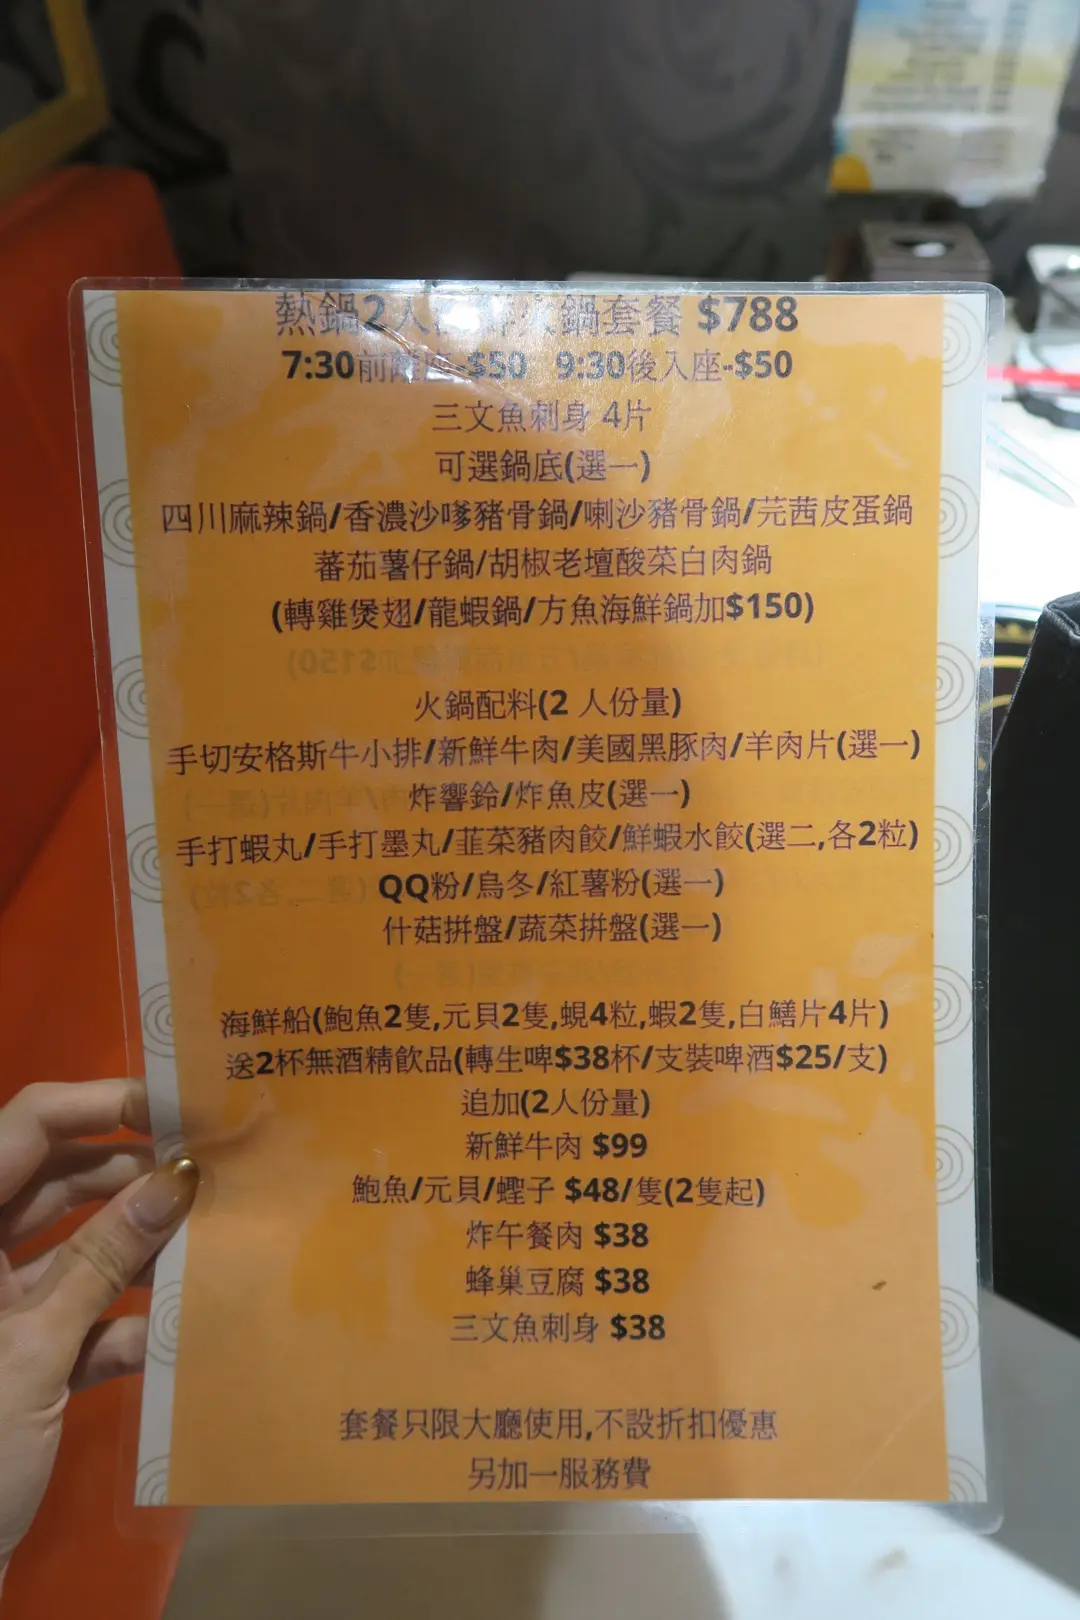 熱鍋2人 鍋套餐 $788
7:30前離座-$50 9:30後入座-$50
三文魚刺身 4片
可選鍋底(選一)
四川麻辣鍋/香濃沙嗲豬骨鍋/喇沙豬骨鍋/芫茜皮蛋鍋
蕃茄薯仔鍋/胡椒老壇酸菜白肉鍋
(轉雞煲翅/龍蝦鍋/方魚海鮮鍋加$150)
火鍋配料(2 人份量)
手切安格斯牛小排/新鮮牛肉/美國黑豚肉/羊肉片(選一)
炸響鈴/炸魚皮(選一)
手打蝦丸/手打墨丸/韮菜豬肉餃/鮮蝦水餃(選二,各2粒)
QQ粉/烏冬/紅薯粉(選一)
什菇拼盤/蔬菜拼盤(選一)
海鮮船(鮑魚2隻,元貝2隻,蜆4粒,蝦2隻,白鱔片4片)
送2杯無酒精飲品(轉生啤$38杯/支裝啤酒$25/支)
追加(2人份量)
新鮮牛肉 $99
鮑魚/元貝/蟶子 $48/隻(2隻起)
炸午餐肉 $38
蜂巢豆腐 $38
三文魚刺身 $38
套餐只限大廳使用,不設折扣優惠
另加一服務費